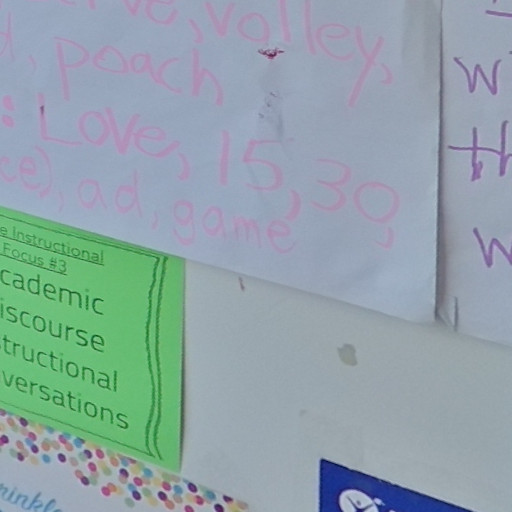 volley,
poach
: Love, 15, 30,
ce), ad, game
e Instructional
Focus #3
cademic
iscourse
structional
versations
rinkle
w
th
w